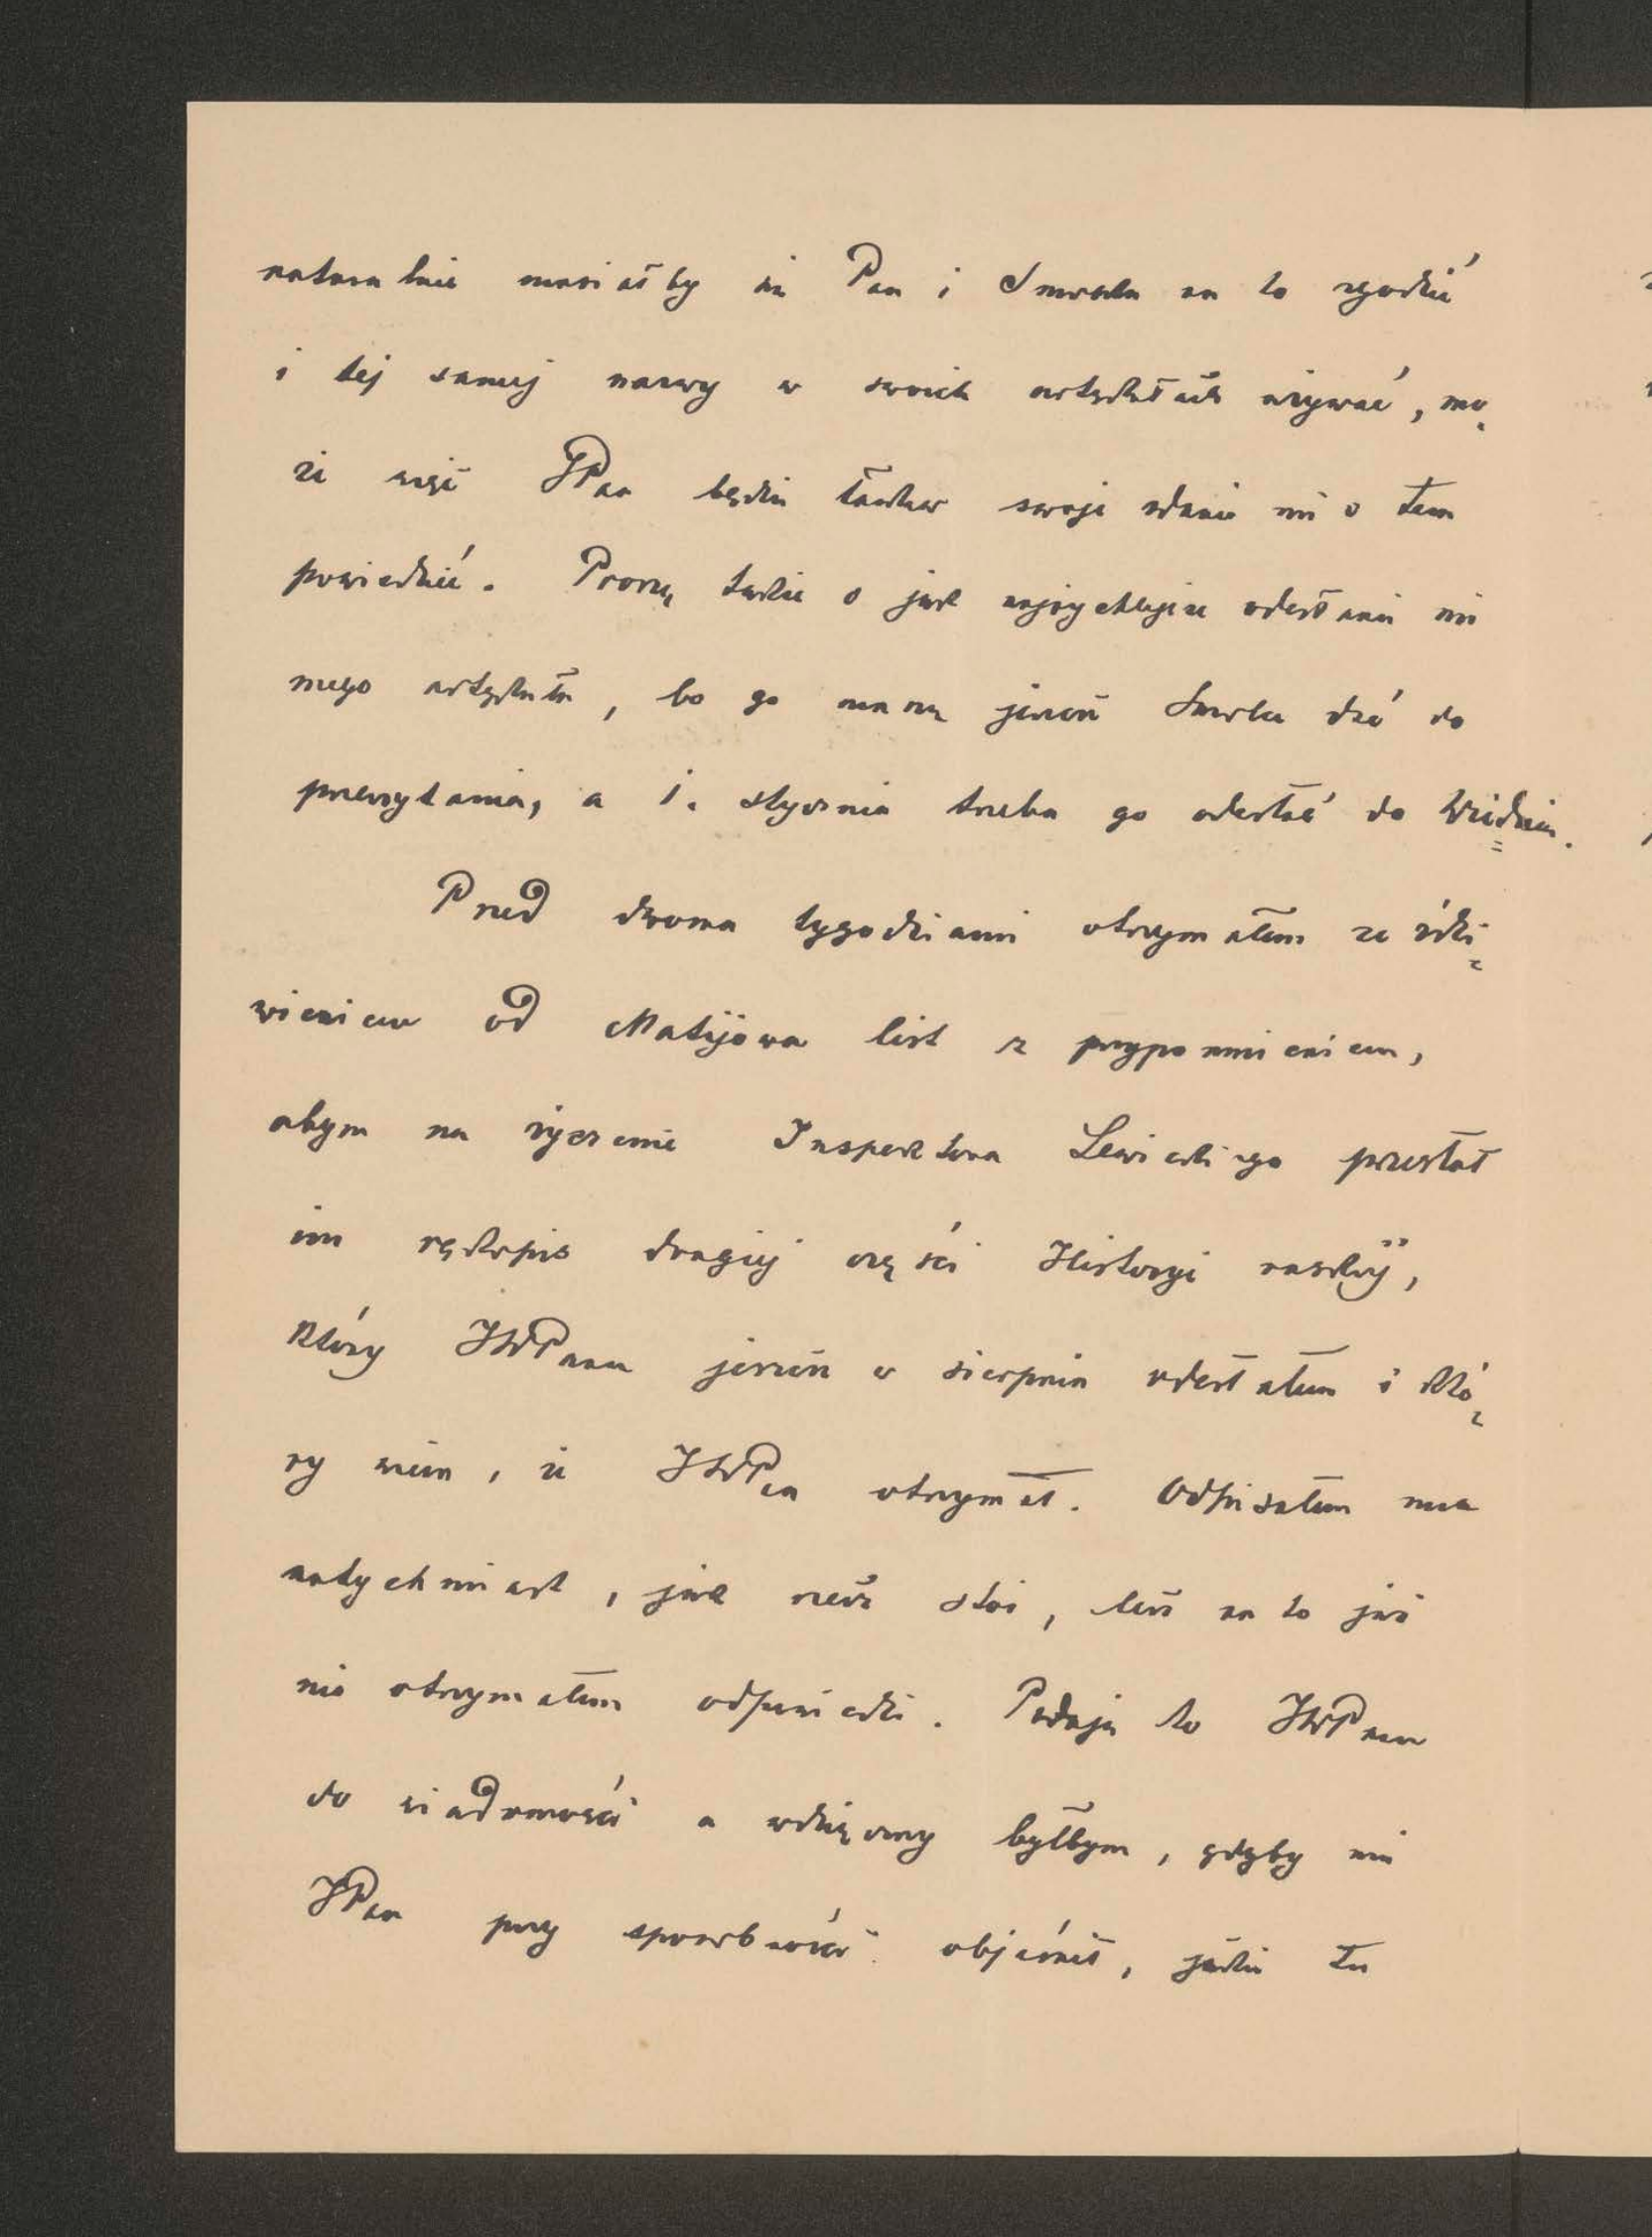 naturalnie musiałby się Pan i Smolka na to zgodzić
i tej samej nazwy w swoich artykułach używać, mo-
że więc JPan będzie łaskaw swoje zdanie mi o tem
powiedzieć. Proszę także o jak najrychlejsze odesłanie mi
mego artykułu, bo go muszę jeszcze Smolce dać do
przeczytania, a 1. stycznia trzeba go odesłać do Wiednia.
Przed dwoma tygodniami otrzymałem ze zdzi-
wieniem od Matijowa list z przypomnieniem,
abym na życzenie Inspektora Lewickiego przesłał
im rękopis drugiej części Historyi ruskiej,
który JWPanu jeszcze w sierpniu odesłałem i któ-
ry wiem, że JWPan otrzymał. Odpisałem mu
natychmiast, jak rzecz stoi, lecz na to już
nie otrzymałem odpowiedzi. Podaję to JWPanu
do wiadomości a wdzięczny byłbym, gdyby mi
JPan przy sposobności objaśnił, jakie tu